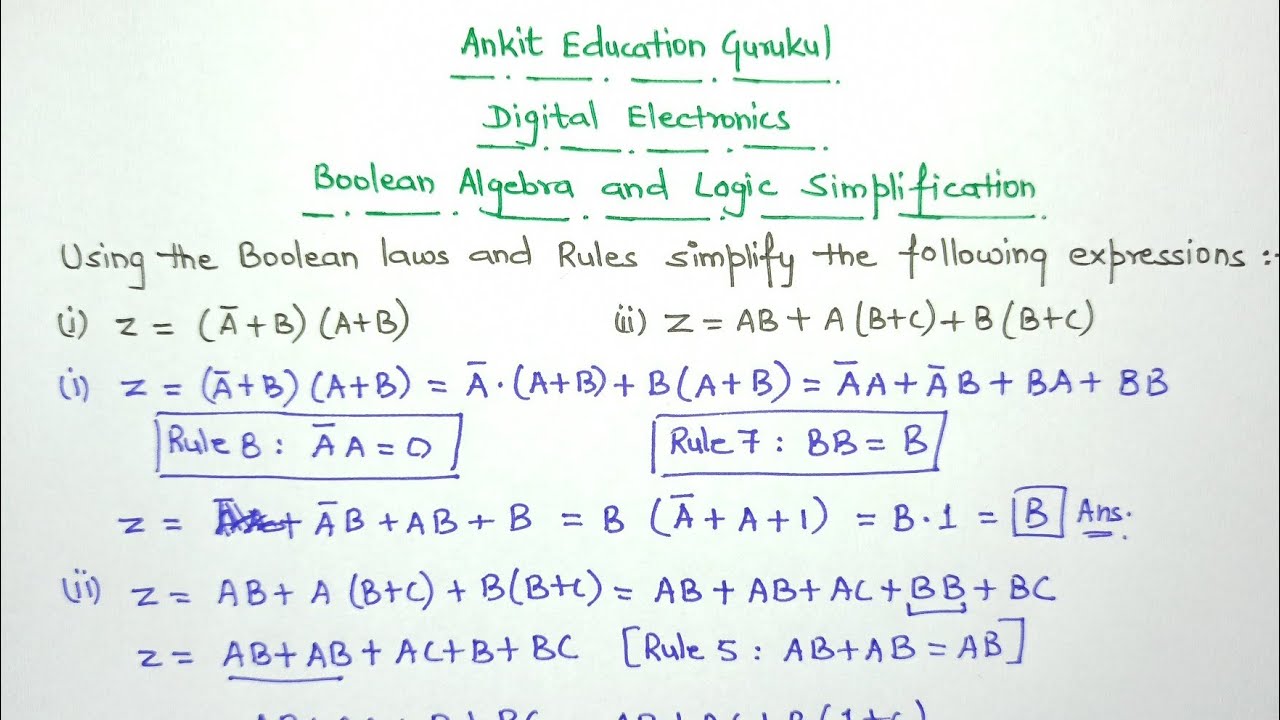 Ankit Education Gurukul
Digital Electronics
Boolean Algebra and Logic Simplification
Using the Boolean laws and Rules simplify the following expressions :-
(i) Z = (Ā+B) (A+B) (ii) Z = AB + A (B+C) + B (B+C)
(i) Z = (Ā+B) (A+B) = Ā·(A+B) + B(A+B) = ĀA + ĀB + BA + BB
Rule 8 : ĀA = 0 Rule 7 : BB = B
Z = ĀB + AB + B = B (Ā + A + 1) = B·1 = B Ans.
(ii) Z = AB + A (B+C) + B(B+C) = AB + AB + AC + BB + BC
Z = AB + AB + AC + B + BC [Rule 5 : AB + AB = AB]